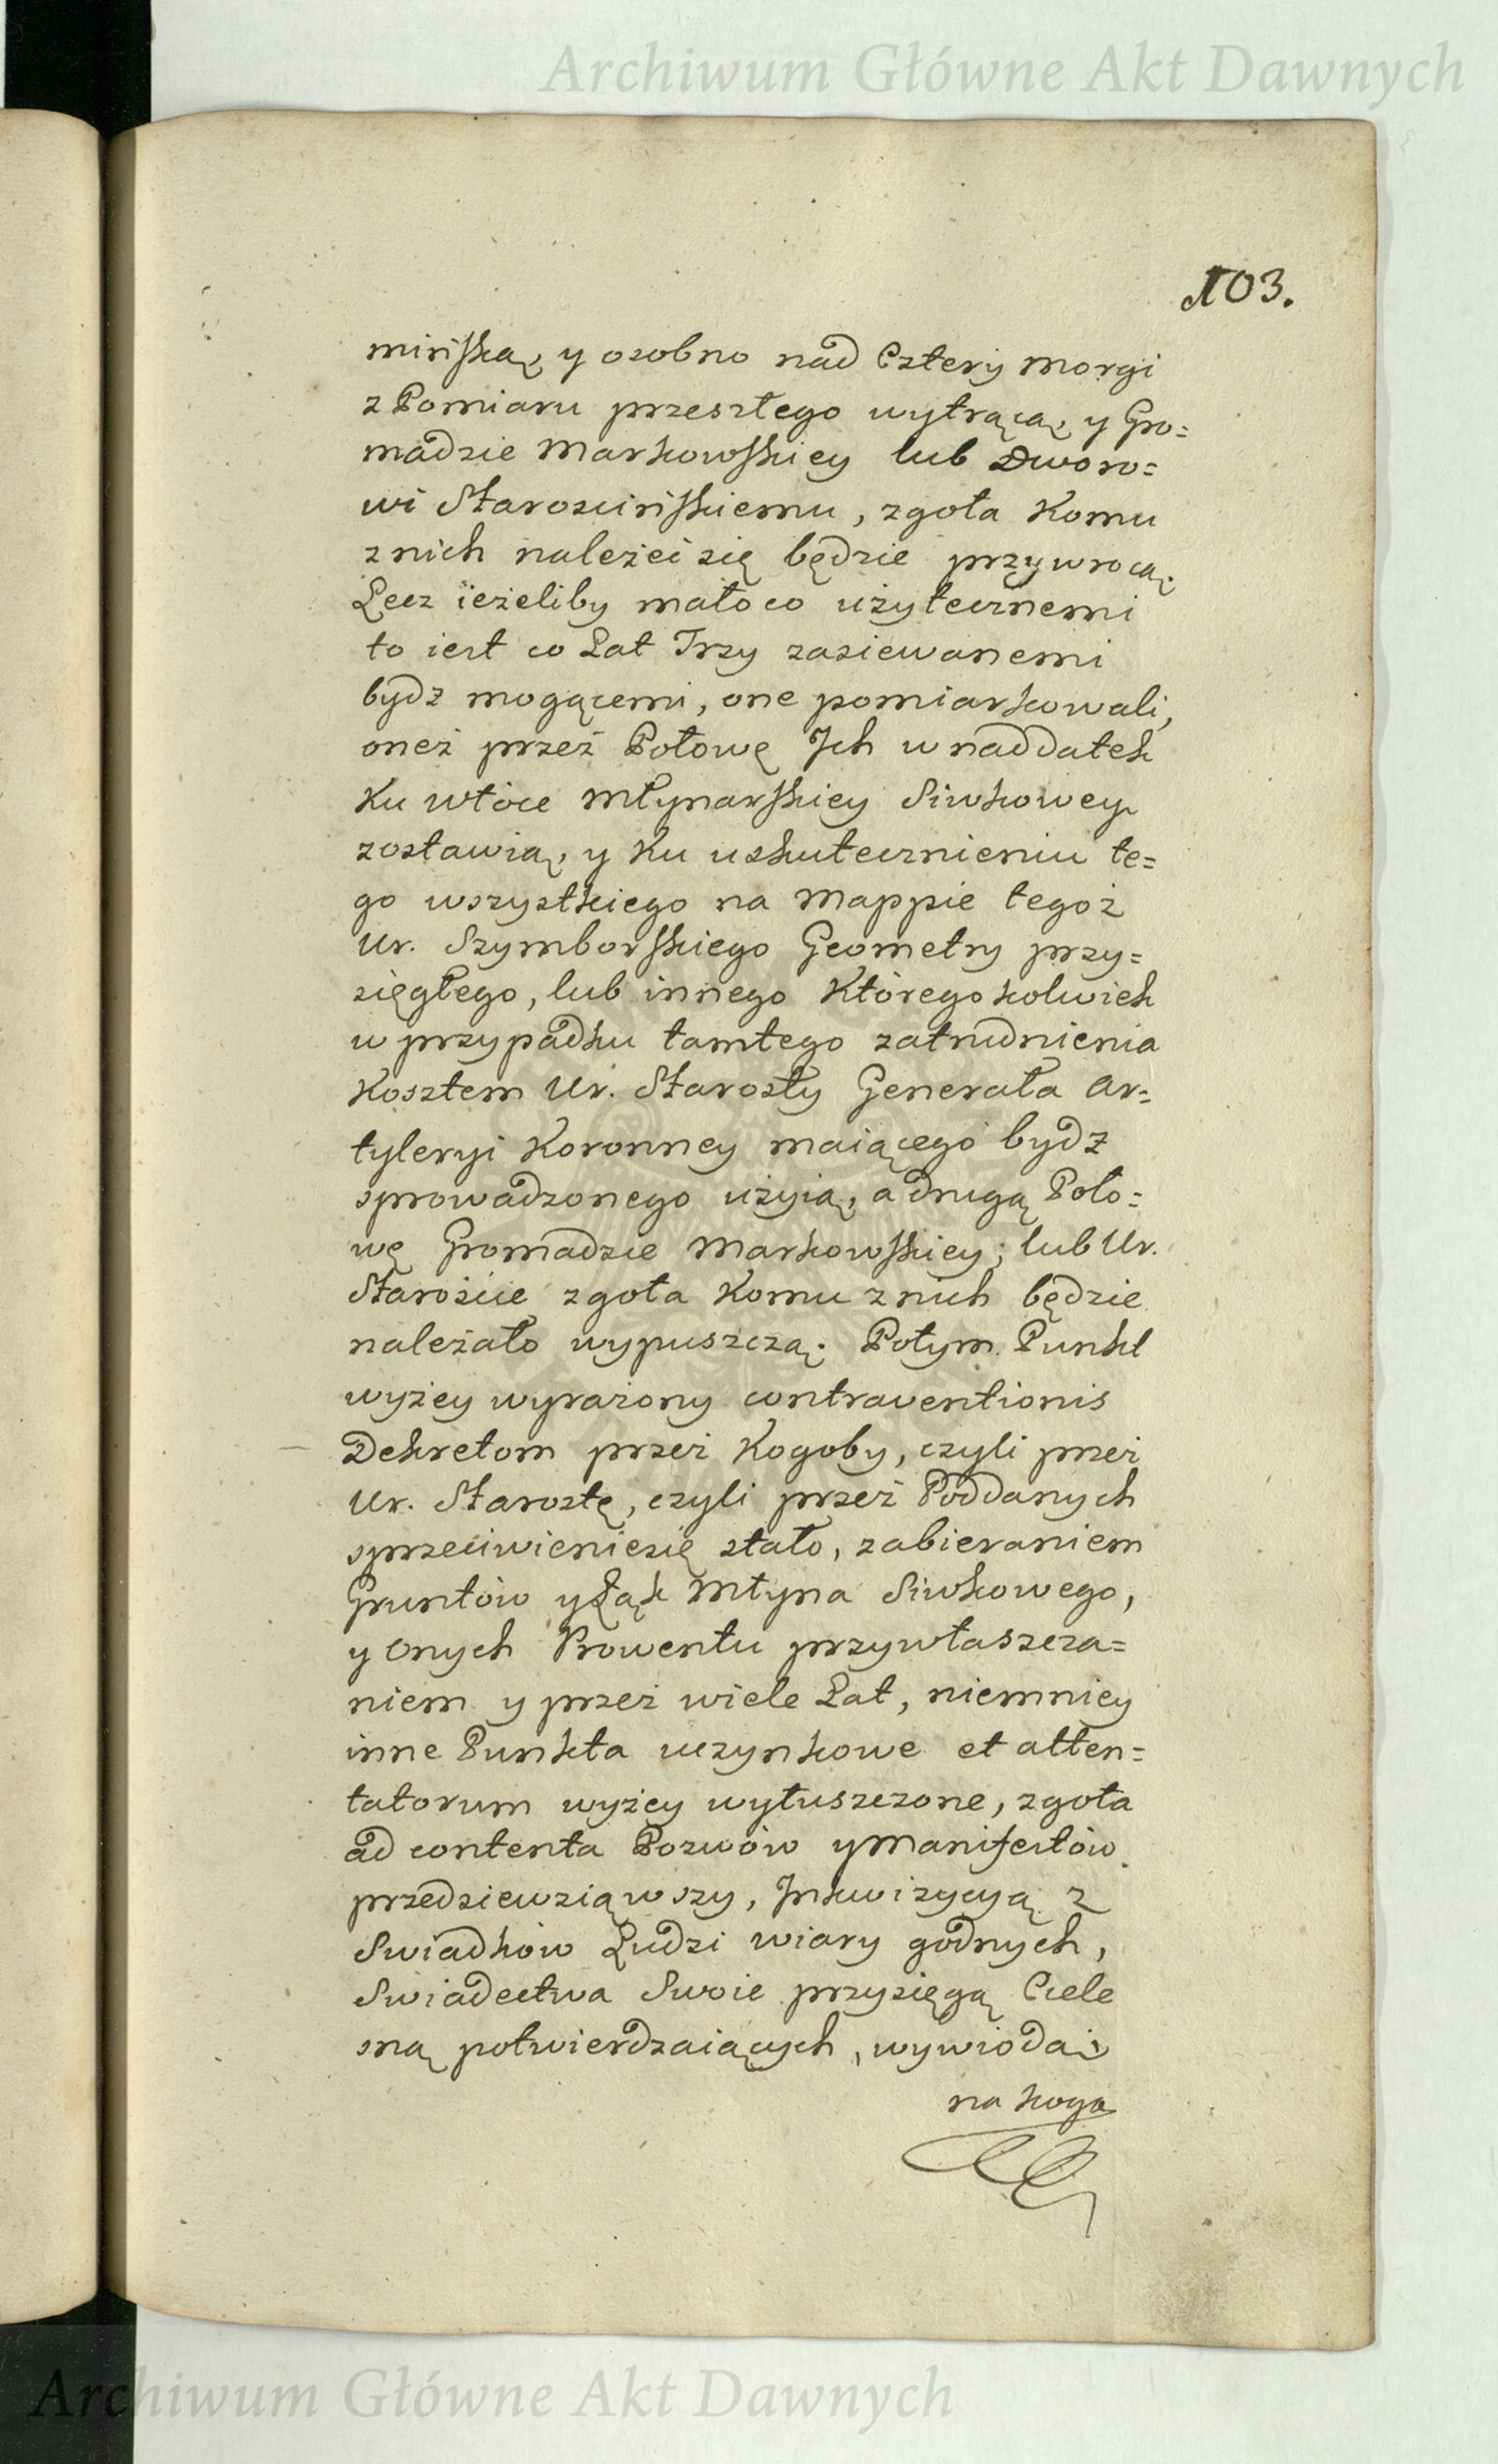 Archiwum Główne Akt Dawnych
103.
mińską, y osobno nad Cztery morgi
z Pomiaru przeszłego wytrącą, y Gro=
madzie Markowskiey lub Dworo=
wi Starościńskiemu, zgoła Komu
z nich należeć się będzie przywrocą.
Lecz ieżeliby mało co użytecznemi
to iest co Lat Trzy zasiewanemi
bydz mogącemi, one pomiarkowali,
oneż przez Połowę Jch w naddatek
Ku włóce Młynarskiey Siwkowey
zostawią, y Ku uskutecznieniu te=
go wszystkiego na Mappie tegoż
Ur. Szymborskiego Geometry przy=
sięgłego, lub innego Któregokolwiek
w przypadku tamtego zatrudnienia
Kosztem Ur. Starosty Generała Ar=
tyleryi Koronney maiącego bydz
sprowadzonego użyią, a drugą Poło=
wę Gromadzie Markowskiey; lub Ur.
Starośćie zgoła Komu z nich będzie
należało wypuszczą. Potym Punkt
wyżey wyrażony contraventionis
Dekretom przez Kogoby, czyli przez
Ur. Starostę, czyli przez Poddanych
sprzeciwieniesię stało, zabieraniem
Gruntów y Łąk Młyna Siwkowego,
y Onych Prowentu przywłaszcza=
niem y przez wiele Lat, niemniey
inne Punkta uczynkowe et atten=
tatorum wyżey wyłuszczone, zgoła
ad contenta Pozwów y Manifestów
przedsiewziąwszy, Jnkwizycyą z
Swiadków Ludzi wiary godnych,
Swiadectwa Swoie przysięgą Ciele
sną potwierdzaiących, wywiodą;
na kogo
Archiwum Główne Akt Dawnych